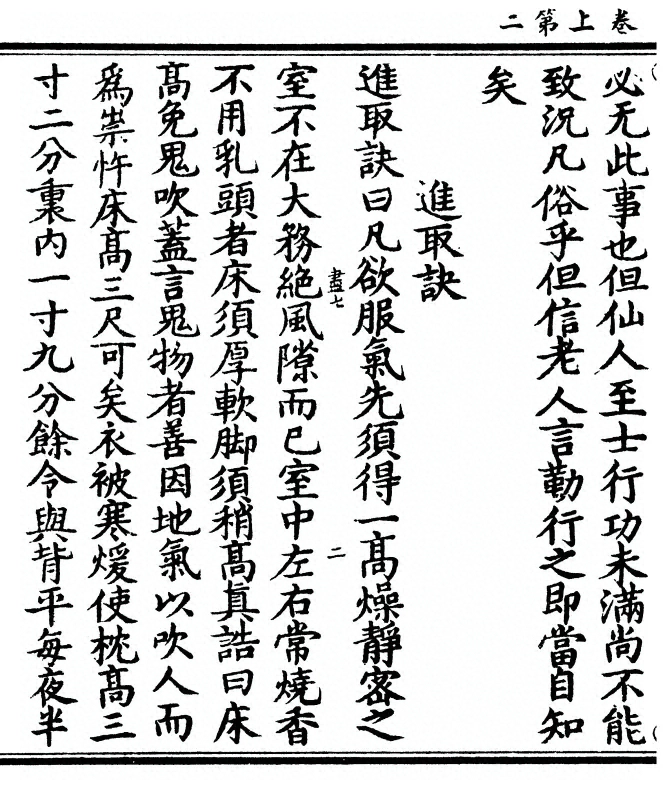 卷上第二
必无此事也但仙人至士行功未滿尚不能
致況凡俗乎但信老人言勤行之即當自知
矣
進取訣
進取訣曰凡欲服氣先須得一高燥靜密之
室不在大務絕風隙而已室中左右常燒香
盡七
二
不用乳頭者床須厚軟脚須稍高真誥曰床
高免鬼吹蓋言鬼物者善因地氣以吹人而
為祟忤床高三尺可矣衣被寒煖使枕高三
寸二分裏內一寸九分餘令與背平每夜半